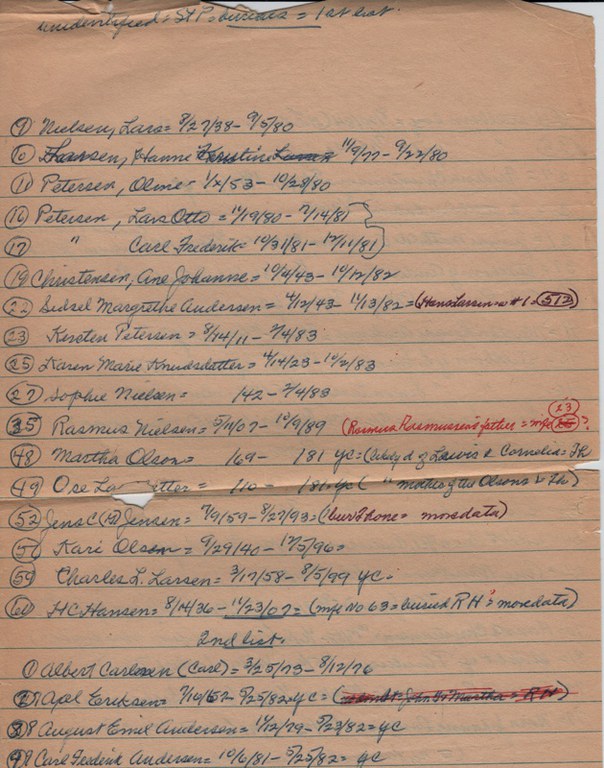 unidentified = St P. burials = 1st list.
(9) Nielsen, Lars = 8/27/38 - 9/5/80
(10) Hansen, Hanne Kerstine 11/9/77 - 9/22/80
(11) Petersen, Oline - 1/2/53 - 10/28/80
(16) Petersen, Lars Otto = 11/19/80 - 7/14/81
(17) " Carl Frederik = 10/31/81 - 12/11/81
(19) Christensen, Ane Johanne = 10/4/43 - 10/12/82
(22) Sidsel Margrethe Andersen = 4/12/43 - 11/13/82 = (Hans Larsen = w #1 = (512)
(23) Kersten Petersen = 8/14/11 - 2/4/83
(25) Karen Marie Knudsdatter = 4/14/23 - 10/2/83
(27) Sophie Nielsen = 142 - 2/4/83
(35) Rasmus Nielsen = 5/11/07 - 10/9/89 (Rasmus Rasmussen's father = mfc 23 ?
(48) Martha Olson = 169 - 181 yc = (baby d of Lewis & Cornelia = FR
(49) Ose La etter = 110 = 181 - yc ( " mother of the Olsons & Fh)
(52) Jens C (P?) Jensen = 7/9/59 - 8/27/93 = ( bur Phone = more data)
(56) Kari Olson = 9/29/40 - 12/5/96 =
(59) Charles L. Larsen = 3/17/58 - 8/5/99 yc.
(60) HC Hansen = 8/14/36 - 11/23/07 = (mfc No 63 = buried RH = more data)
2nd list.
(1) Albert Carlsen (Carl) = 3/25/73 - 8/12/76
(2) ? Axel Eriksen = 7/19/62 - 5/25/82 = yc =
(3) ? August Emil Andersen = 11/12/79 - 5/23/82 = yc
(4) ? Carl Fredrik Andersen = 10/6/81 - 5/25/82 = yc